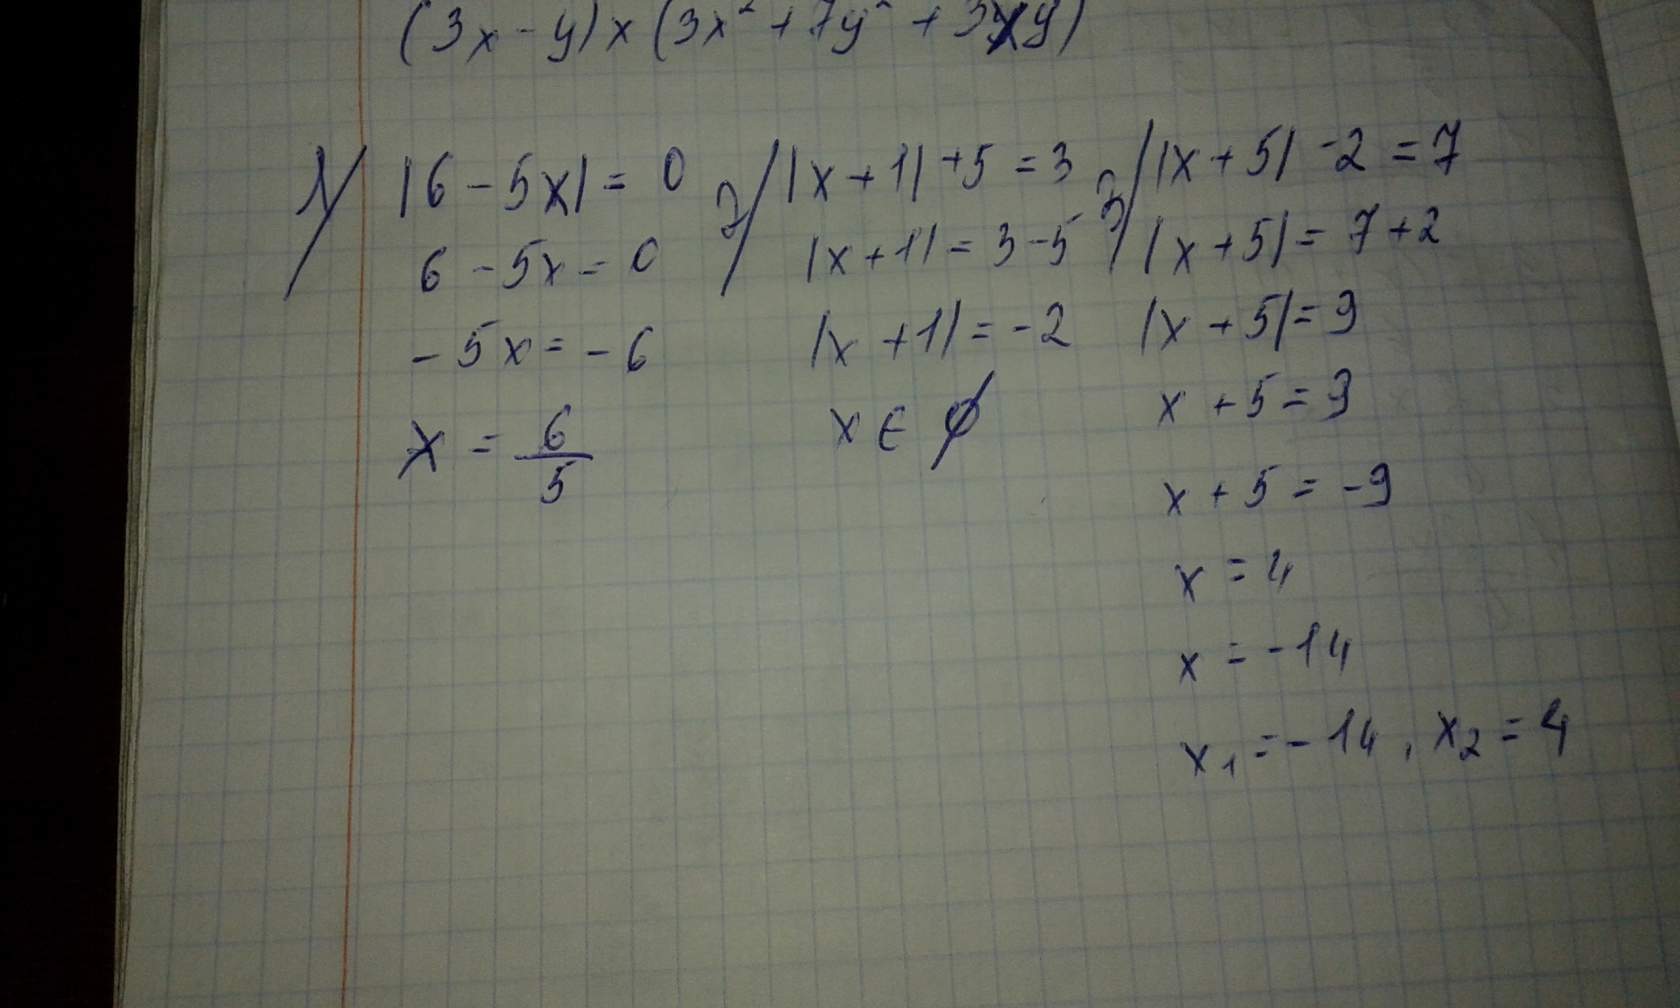 (3x - y) x (3x² + 7y² + 3xy)
1/ |6 - 5x| = 0
6 - 5x = 0
- 5x = - 6
x = 6/5
2/ |x + 1| + 5 = 3
|x + 1| = 3 - 5
|x + 1| = - 2
x ∈ ∅
3/ |x + 5| - 2 = 7
|x + 5| = 7 + 2
|x + 5| = 9
x + 5 = 9
x + 5 = - 9
x = 4
x = - 14
x₁ = - 14, x₂ = 4